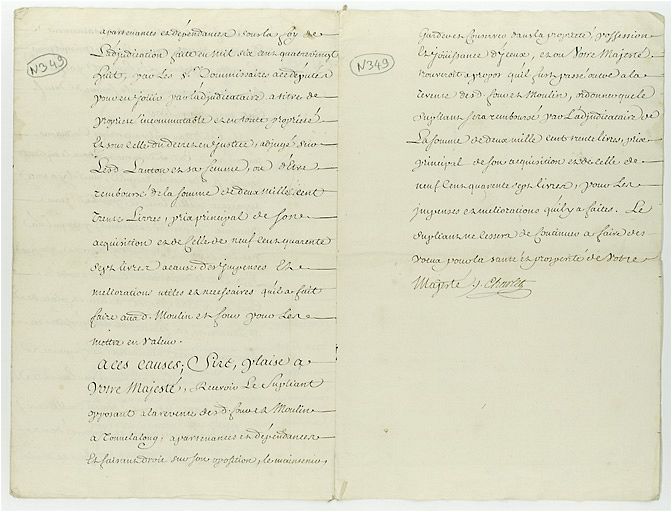 N349
apartenances et dépendances sous la foy de
Ladjudication faite en mil six cent quatrevingt
huit, par les Srs Commissaires a ce députés
pour en jouir par ladjudicataire a titre de
propriété incommutable et en toute propriété
Et sous celle du decret en justice, adjugé sur
Led. Lanton et sa femme, ou d'être
remboursé de la somme de deux mille cent
Trente Livres, prix principal de son
acquisition et de Celle de neuf cent quarente
sept livres acause des impenses Et
meliorations utiles et necessaires quil a fait
faire aud. Moulin et four pour Les
mettre en valeur.
a ces causes, Sire, plaise a
Votre Majesté, Recevoir Le Supliant
opposant a la revente desd. four et Moulin
a Tonnelalong, apartenances et dépendances
Et faisant droit sur son oposition, le maintenir,
N349
Garder et Conserver dans la propriété, possession
Et jouissance d'yceux, et ou Votre Majesté
trouveroit a propos quil fut passé outre a la
revente desd. four et Moulin, ordonner que le
Supliant sera remboursé par Ladjudicataire de
La somme de deux mille cent trente livres, prix
principal de son acquisition et de celle de
neuf Cens quarente sept livres, pour Les
impenses et meliorations quil y a faites. Le
Supliant ne cessera de Continuer a faire des
vœux pour la santé et prosperité de Votre
Majesté ./. Charlet